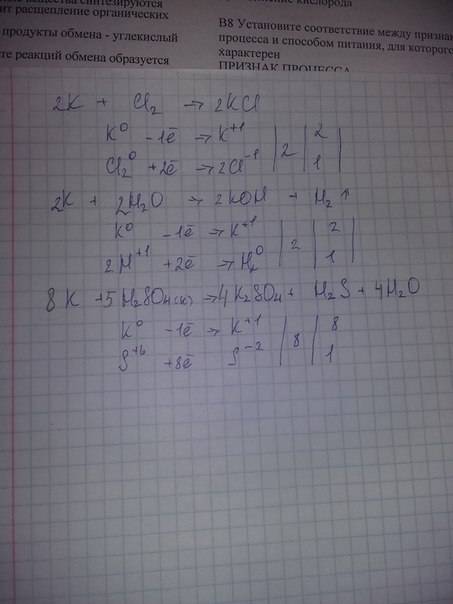 ные вещества синтезируются
ит расщепление органических
продукты обмена - углекислый
те реакций обмена образуется
кислорода
В8 Установите соответствие между признак
процесса и способом питания, для которого
характерен
ПРИЗНАК ПРОЦЕССА
2K + Cl₂ → 2KCl
K⁰ -1ē → K⁺¹ | 2 | 2 |
Cl₂⁰ +2ē → 2Cl⁻¹ | 1 |
2K + 2H₂O → 2KOH + H₂ ↑
K⁰ -1ē → K⁺¹ | 2 | 2 |
2H⁺¹ +2ē → H₂⁰ | 1 |
8K +5H₂SO₄(к) → 4K₂SO₄ + H₂S + 4H₂O
K⁰ -1ē → K⁺¹ | 8 | 8
S⁺⁶ +8ē S⁻² | 1